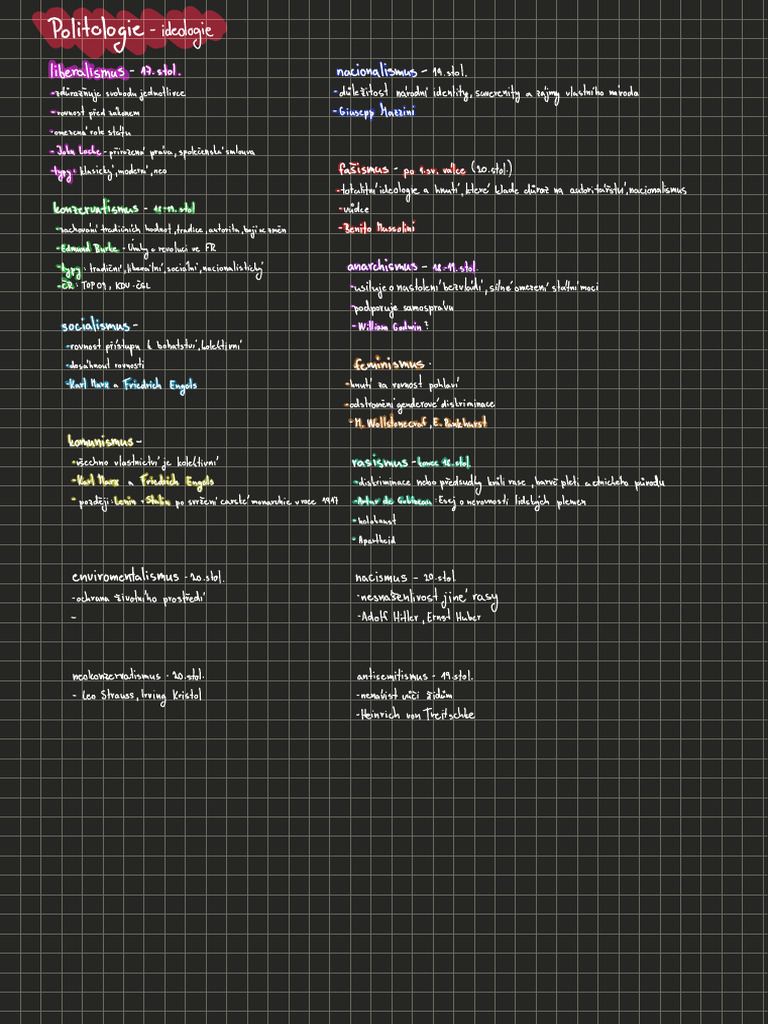 Politologie - ideologie
liberalismus - 17. stol.
- zdůrazňuje svobodu jednotlivce
- rovnost před zákonem
- omezená role státu
- John Locke - přirozená práva, společenská smlouva
- typy: klasický, moderní, neo
konzervatismus - 18.-19. stol
- zachování tradičních hodnot, tradice, autorita, bojí se změn
- Edmund Burke - Úvahy o revoluci ve FR
- typy: tradiční, liberální, sociální, nacionalistický
- ČR: TOP 09, KDU-ČSL
socialismus -
- rovnost přístupu k bohatství, kolektivní
- dosáhnout rovnosti
- Karl Marx a Friedrich Engels
komunismus -
- všechno vlastnictví je kolektivní
- Karl Marx a Friedrich Engels
- později: Lenin + Stalin po svržení carské monarchie v roce 1917
enviromentalismus - 20. stol.
- ochrana životního prostředí
-
neokonzervatismus - 20. stol.
- Leo Strauss, Irving Kristol
nacionalismus - 19. stol.
- důležitost národní identity, suverenity a zájmy vlastního národa
- Giusepp Mazzini
fašismus - po 1. sv. válce (20. stol.)
- totalitní ideologie a hnutí, které klade důraz na autoritářství, nacionalismus
- vůdce
- Benito Mussolini
anarchismus - 18.-19. stol.
- usiluje o nastolení bezvládí, silné omezení státní moci
- podporuje samosprávu
- William Godwin?
feminismus -
- hnutí za rovnost pohlaví
- odstranění genderové diskriminace
- M. Wollstonecraf, E. Pankhurst
rasismus - konec 18. stol.
- diskriminace nebo předsudky kvůli rase, barvě pleti a etnickího původu
- Artur de Gobineau: Esej o nerovnosti lidských plemen
- holokaust
- Apartheid
nacismus - 20. stol
- nesnášenlivost jiné rasy
- Adolf Hitler, Ernst Huber
antisemitismus - 19. stol.
- nenávist vůči židům
- Heinrich von Treitschke